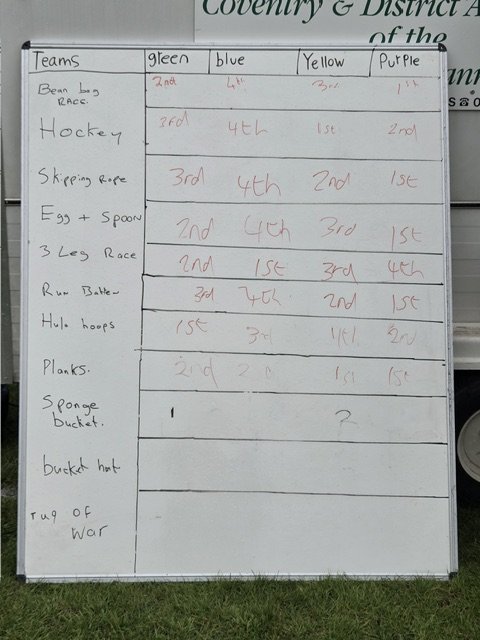 Coventry & District A
of the
Teams green blue Yellow Purple
Bean bag RACE. 2nd 4th 3rd 1st
Hockey 3rd 4th 1st 2nd
Skipping Rope 3rd 4th 2nd 1st
Egg + Spoon 2nd 4th 3rd 1st
3 Leg Race 2nd 1st 3rd 4th
Run 3rd 4th 2nd 1st
Hula hoops 1st 3rd 4th 2nd
Planks. 2nd 1st 1st
Sponge bucket. 1 2
bucket hat
Tug OF
War